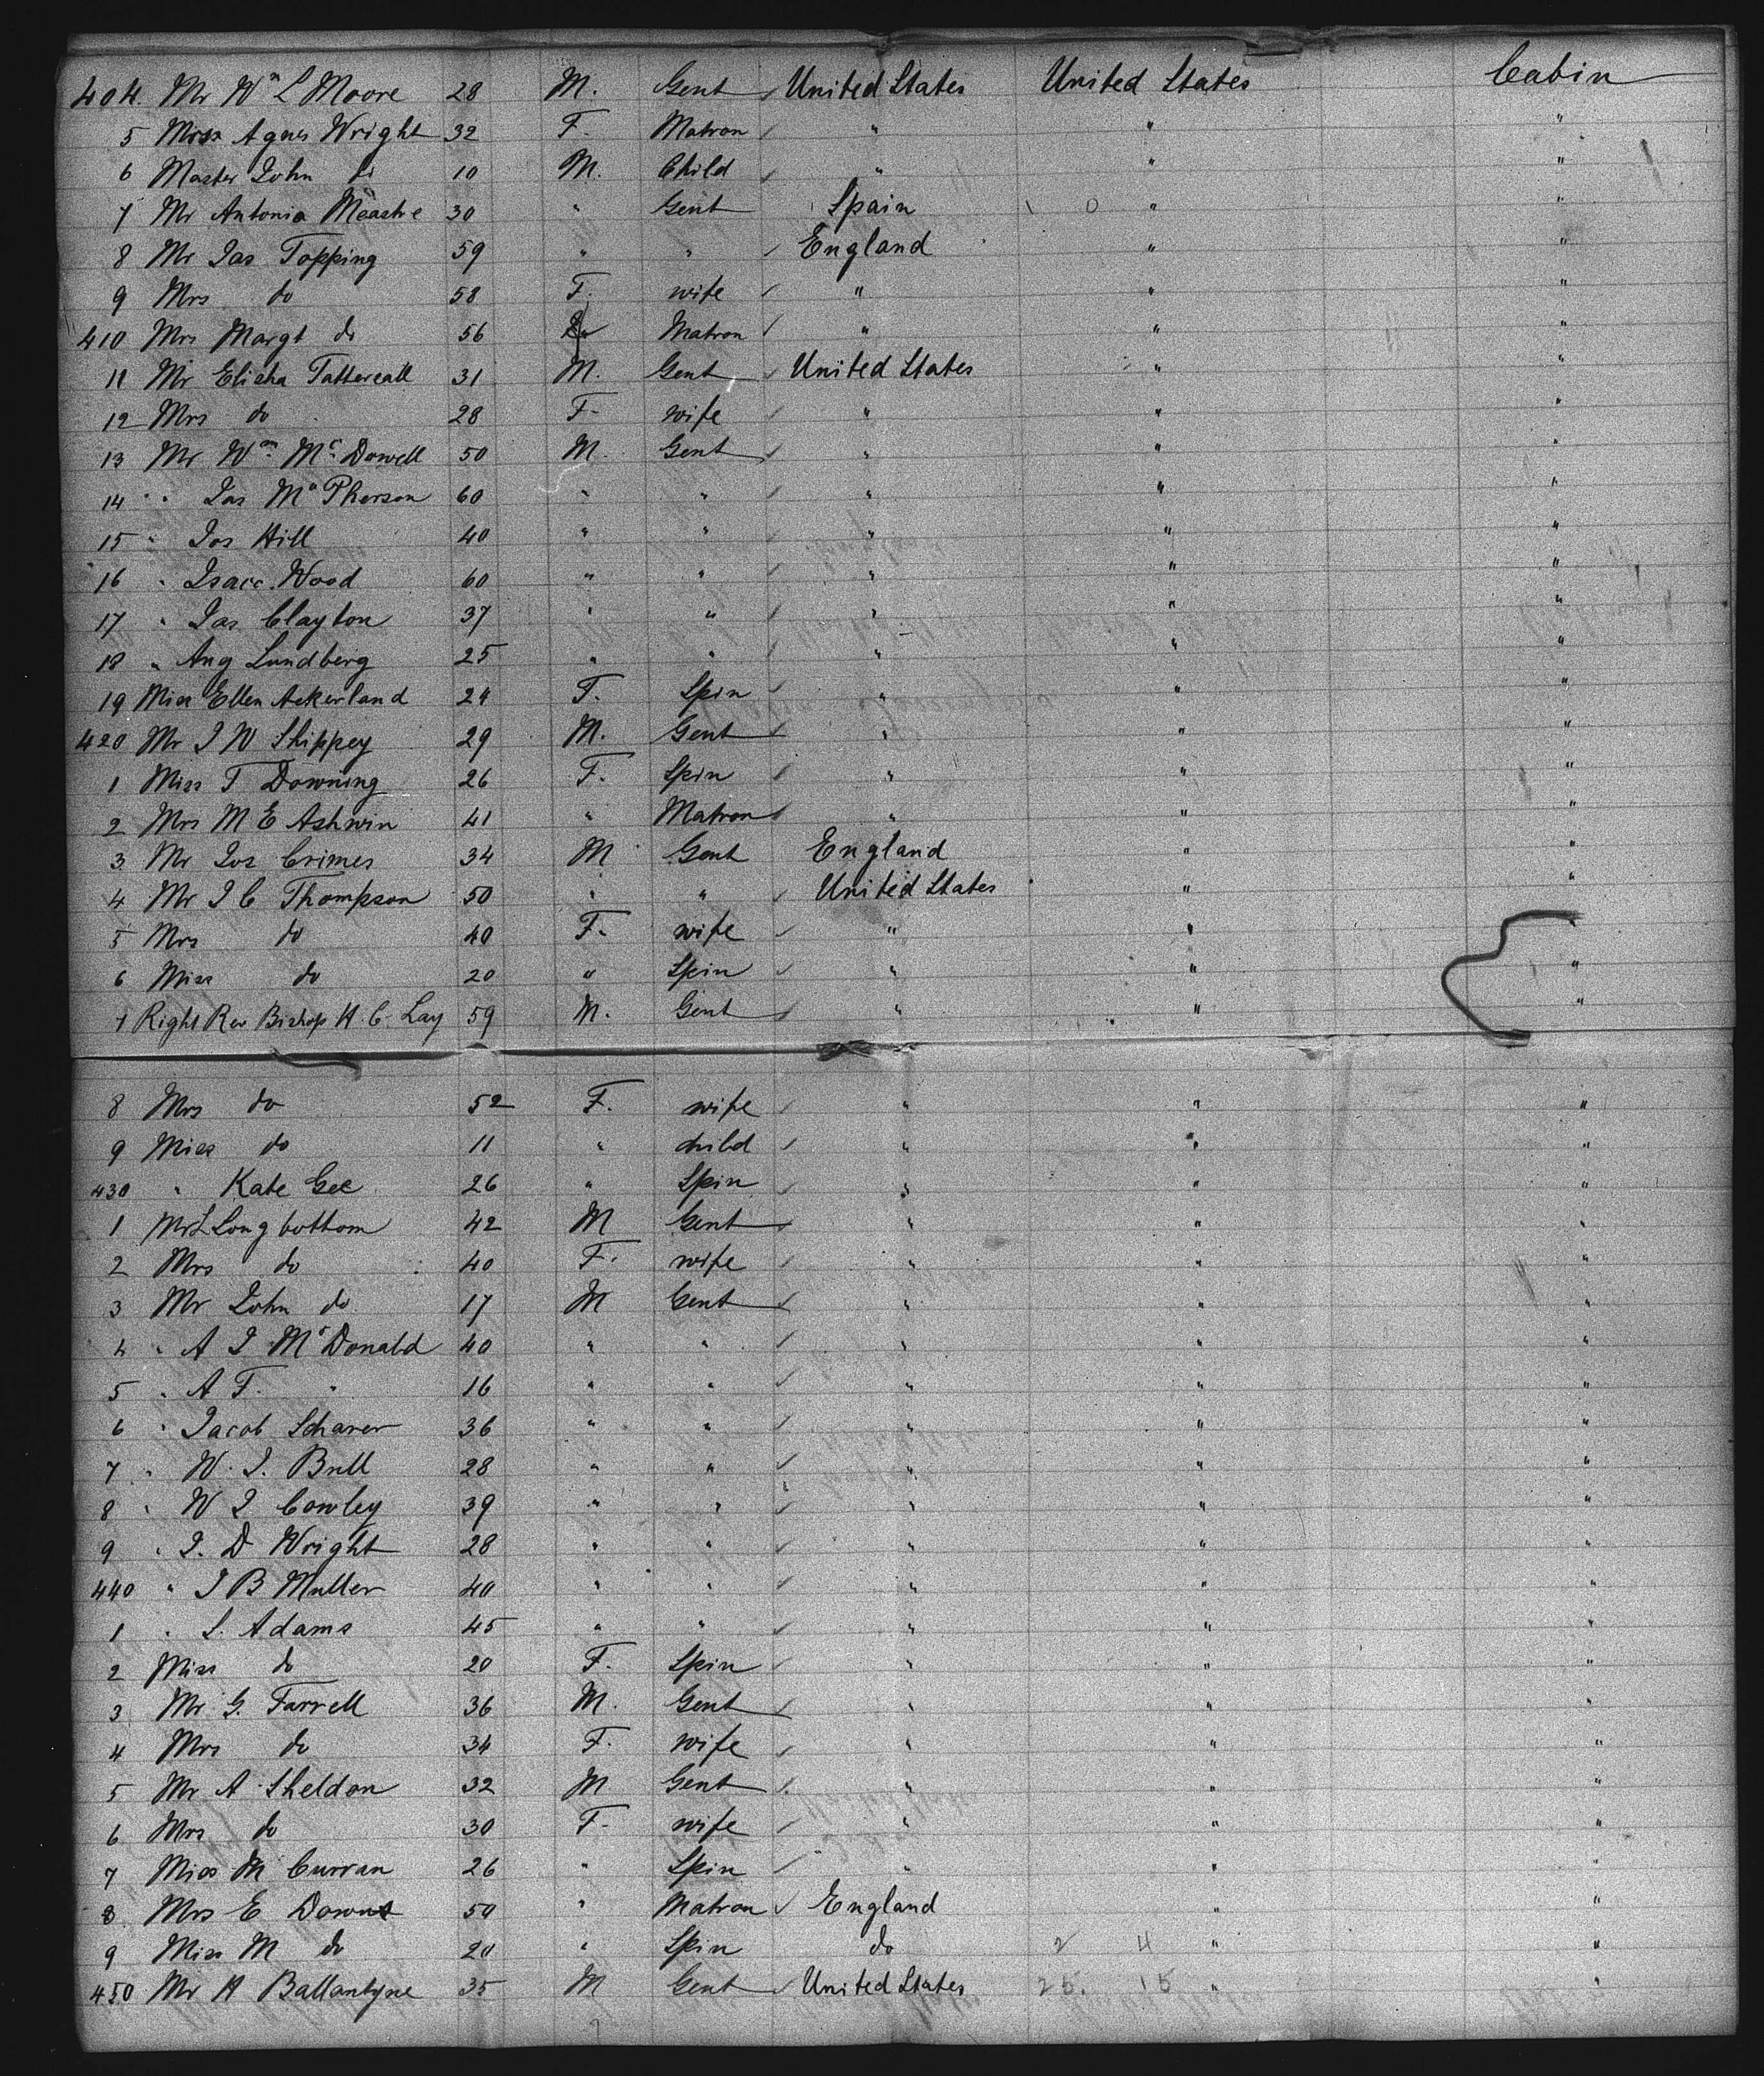 404. Mr Wm L Moore 28 M. Gent United States United States Cabin
5 Mrs Agnes Wright 32 F. Matron " " "
6 Master John 10 M. Child " " "
7 Mr Antonia Meastre 30 " Gent Spain 0 " "
8 Mr Jas Topping 59 " " England " "
9 Mrs do 58 F. wife " " "
410 Mrs Margt do 56 Matron " " "
11 Mr Elisha Tattersall 31 M. Gent United States " "
12 Mrs do 28 F. wife " " "
13 Mr Wm McDowell 50 M. Gent " " "
14 " Jas McPherson 60 " " " " "
15 " Jos Hill 40 " " " " "
16 " Isacc Wood 60 " " " " "
17 " Jas Clayton 37 " " " " "
18 " Aug Lundberg 25 " " " " "
19 Miss Ellen Ackerland 24 F. Spin " " "
420 Mr J W Shippey 29 M. Gent " " "
1 Miss T Downing 26 F. Spin " " "
2 Mrs M E Ashwin 41 " Matron " " "
3 Mr Jos Crimes 34 M Gent England " "
4 Mr J C Thompson 50 " " United States " "
5 Mrs do 40 F. wife " " "
6 Miss do 20 " Spin " " "
7 Right Rev Bishop H. C. Lay 59 M. Gent " " "
8 Mrs do 52 F. wife " " "
9 Miss do 11 " child " " "
430 " Kate Gee 26 " Spin " " "
1 Mr L Longbottom 42 M Gent " " "
2 Mrs do 40 F. wife " " "
3 Mr John do 17 M Gent " " "
4 " A J McDonald 40 " " " " "
5 " A F. " 16 " " " " "
6 " Jacob Scharer 36 " " " " "
7 " W. J. Bull 28 " " " " "
8 " W J Cowley 39 " " " " "
9 " J. D Wright 28 " " " " "
440 " J B Muller 40 " " " " "
1 " S. Adams 45 " " " " "
2 Miss do 20 F. Spin " " "
3 Mr G. Farrell 36 M. Gent " " "
4 Mrs do 34 F. wife " " "
5 Mr A Sheldon 32 M Gent " " "
6 Mrs do 30 F. wife " " "
7 Miss M Curran 26 " Spin " " "
8 Mrs E Downs 50 " Matron England " "
9 Miss M do 20 " Spin do 2 4 " "
450 Mr H Ballantyne 35 M Gent United States 25. 15 " "